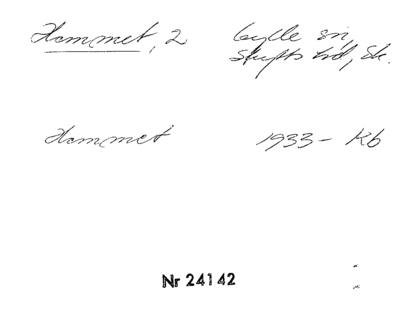 Hammet, 2 Gylle sn,
Skytts hd, Sk.
Hammet 1933 - Kb
Nr 24142